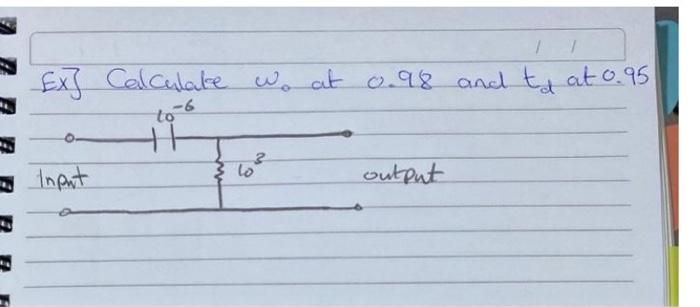 Ex] Calculate ω₀ at 0.98 and t_d at 0.95
10⁻⁶
Input 10³ output